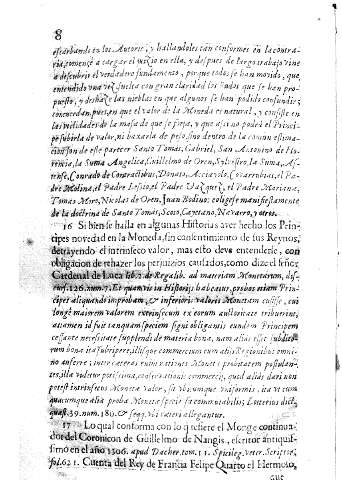 8
escarbando en los Autores, y hallandoles tan conformes en la contra-
ria, comencè a cargar el juizio en ella, y despues de largo trabajo vine
a descubrir el verdadero fundamento, porque todos se han movido, que
entendido una vez, suelta con gran claridad las dudas que se han pro-
puesto, y deshaze las nieblas en que algunos se han podido confundir;
concuerdan pues, en que el valor de la Moneda es natural, y consiste en
las utilidades de la masa de que se forja, y que assi no podrà el Princi-
pe subirla de valor, ni baxarla de peso, sino dentro de la comun estima-
cion son de este parecer Santo Tomàs, Gabriel, San Antonino de Flo-
rencia, la Suma Angelica, Guillelmo de Oren, Sylvestro, la Suma, As-
tense, Conrado de Contractibus, Donato, Acciavolo, Covarrubias, el Pa-
dre Molina, el Padre Lesio, el Padre Vazquez, el Padre Mariana,
Tomas Miro, Nicolas de Oren, Juan Bodino: coligese manifiestamente
de la doctrina de Santo Tomàs, Scoto, Cayetano, Navarro, y otros.
16 Si bien se halla en algunas Historias aver hecho los Prin-
cipes novedad en la Moneda, sin consentimiento de sus Reynos,
detrayendo el intrinseco valor, mas esto deve entenderse, con
obligacion de rehazer los perjuizios causados, como dize el señor
Cardenal de Luca lib. 2. de Regalib. ad materiam Monetarum, dis-
curs. 126. num. 7. Et quamvis in Historijs habeatur, probos etiam Prin-
cipes aliquando improbam, & inferioris valoris Monetam cusisse, cui
longè maiorem valorem extrinsecum ex eorum auctoritate tribuerint,
attamen id fuit tanquam speciem signi obligantis eundem Principem
cessante necessitate supplendi de materia bona, nam aliàs esset subdito-
rum bona ita surripere, illisque commercium cum alijs Regionibus omni-
no auferre; inter cæteras enim rationes Monetæ probitatem postulan-
tes, illa videtur potissima, conservationis commercij, quod aliàs dari non
potest intrinsecus Monetæ valor, sit ubicumque uniformis, ita ut cum
quacumque alia proba Moneta specie sit commutabilis; Luterius dict.
quæst. 39. num. 180. & seqq. ubi cæteri allegantur.
17 Lo qual conforma con lo q refiere el Monge continua-
dor del Coronicon de Guillelmo de Nangis, escritor antiquis-
simo en el año 1306. apud Dacher. tom. 11. Spicileg. veter. Scriptor.
fol. 621. Cuenta del Rey de Francia Felipe Quarto el Hermoso,
que